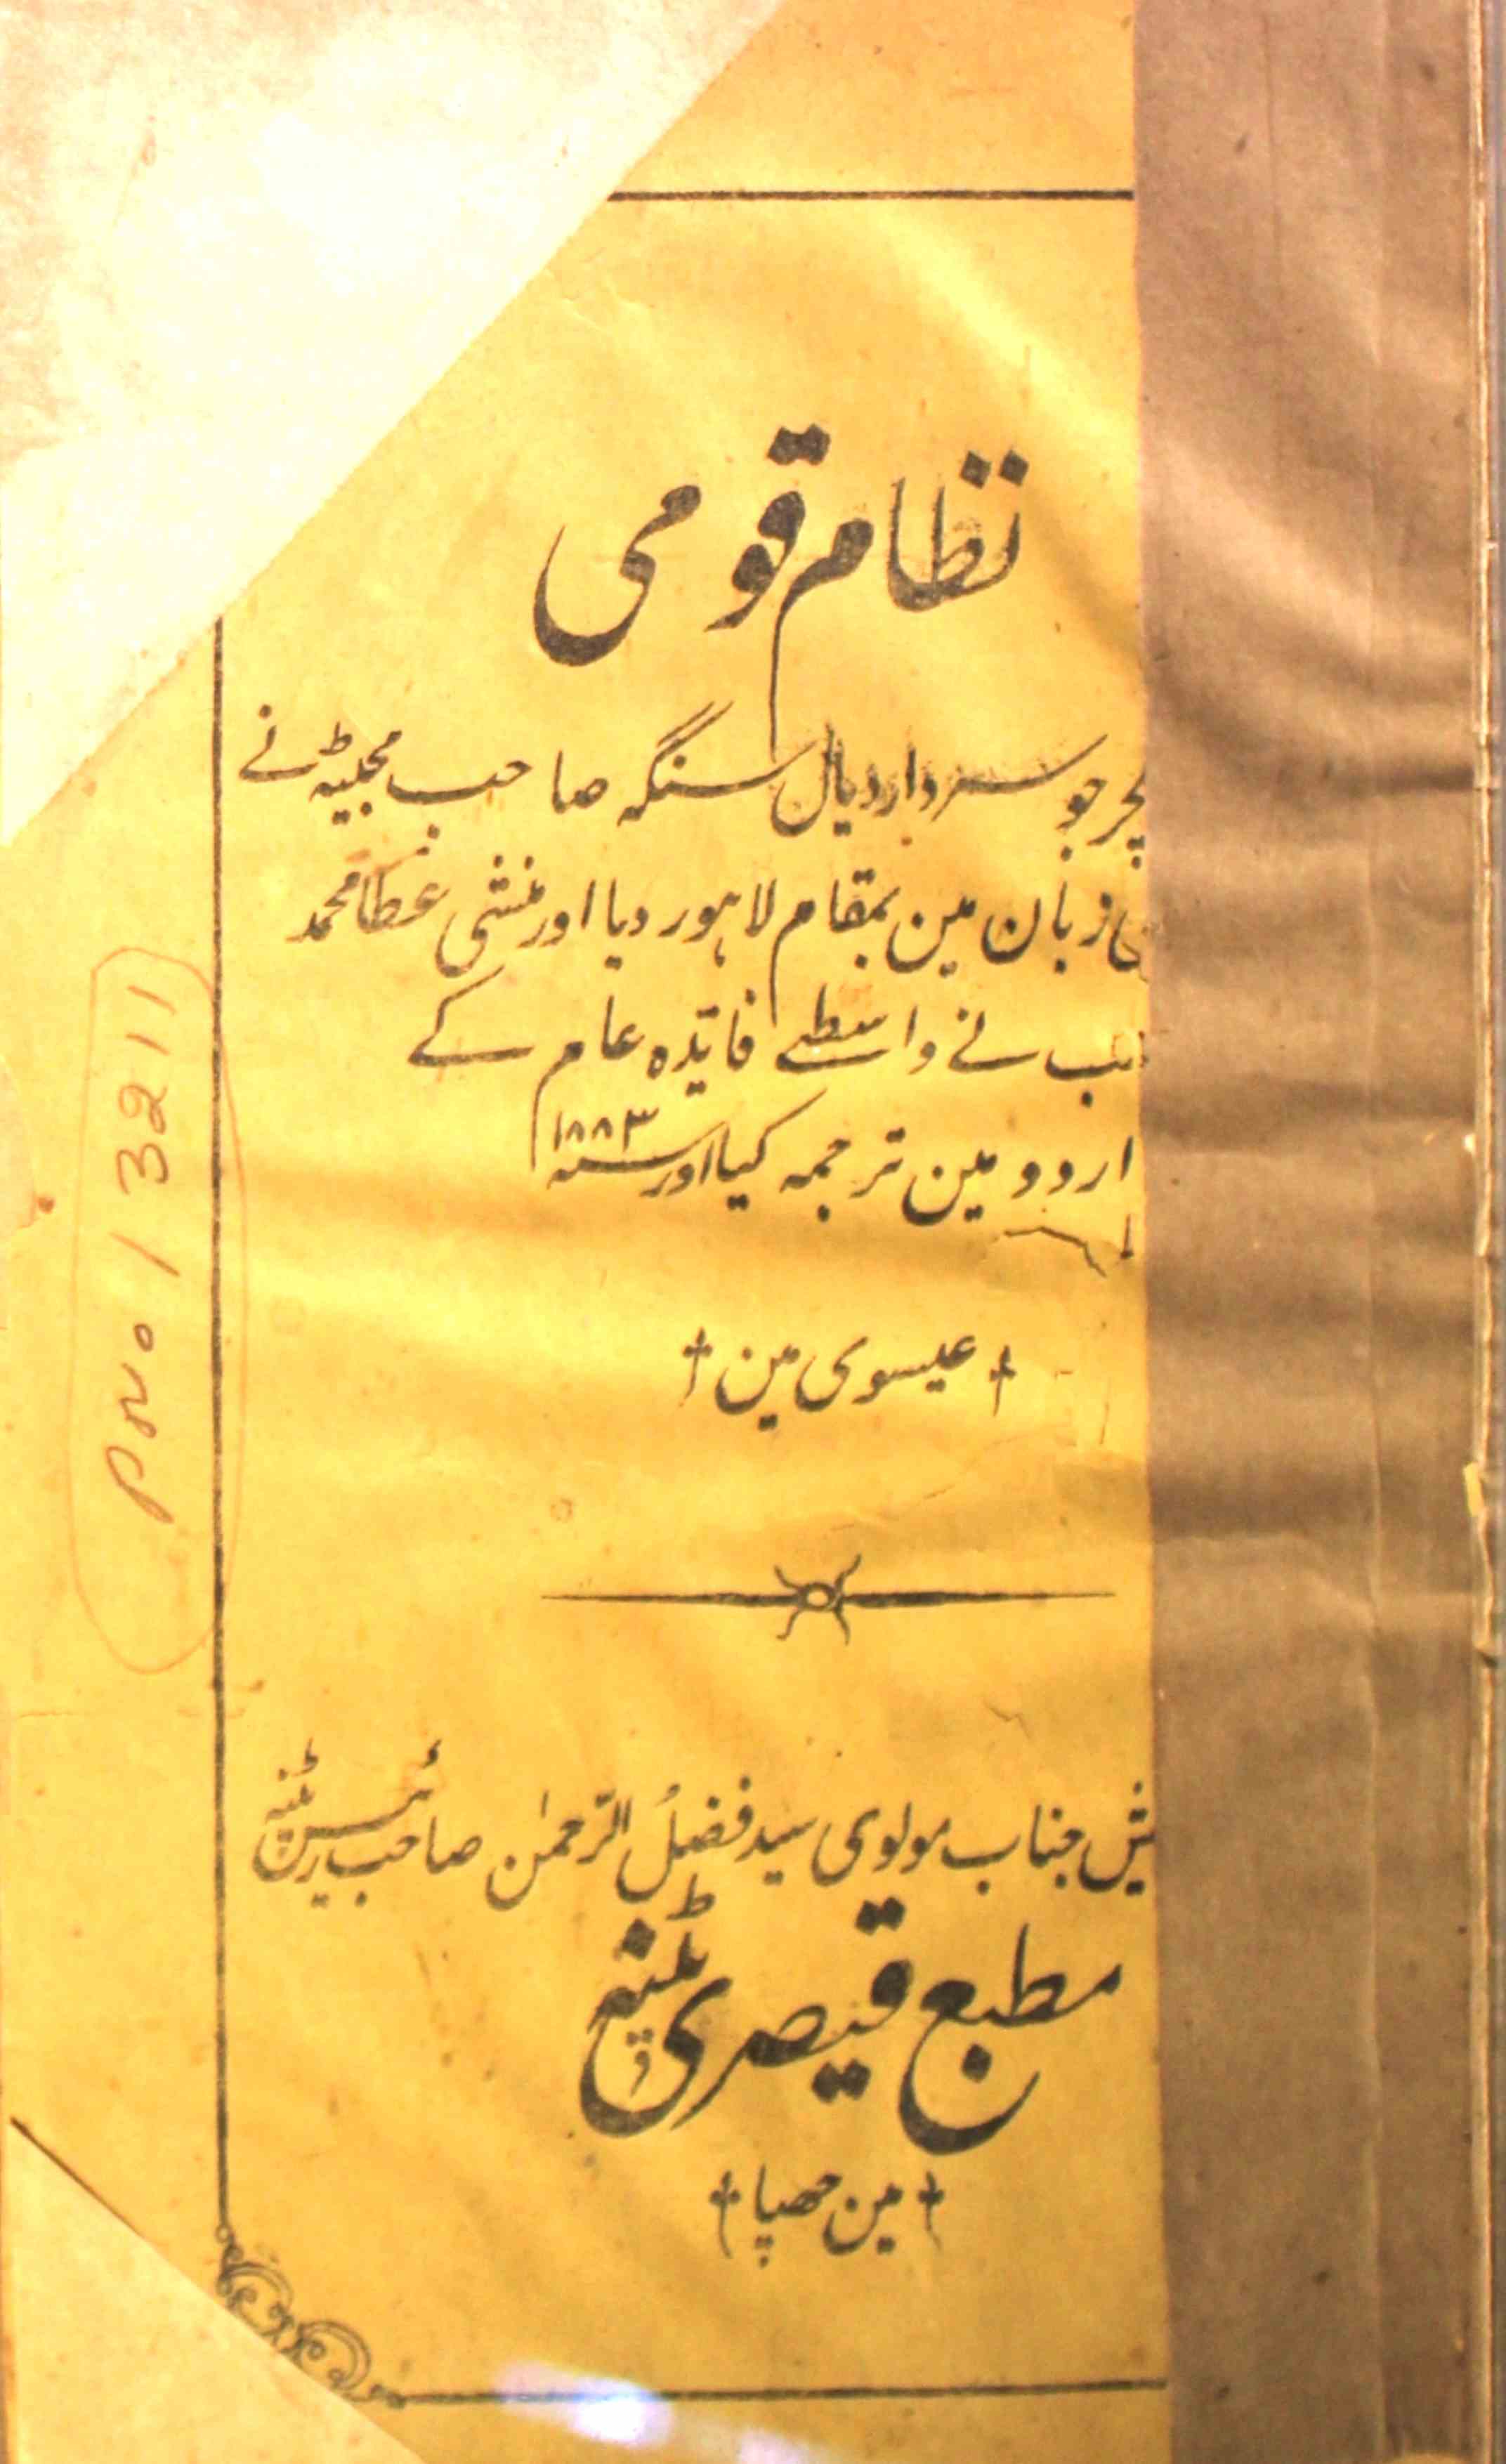 نظام قومی
لچر جو سردار دیال سنگہ صاحب مجیٹیہ نے
ی زبان مین بمقام لاہور دیا اور منشی عطا محمد
حب نے واسطے فایدہ عام کے
اردو مین ترجمہ کیا اور سنہ ۱۸۸۳
عیسوی مین
ش جناب مولوی سید فضل الرحمٰن صاحب رئیس پٹنہ
مطبع قیصری پٹنہ
مین چھپا
PNO / 3211